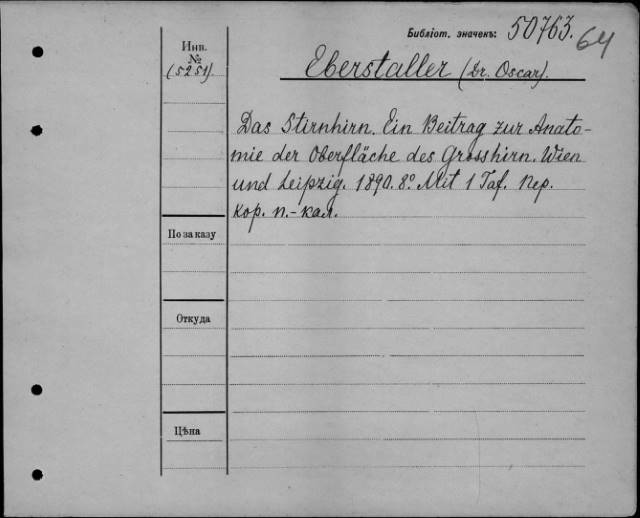 Библіот. значекъ: 50763. 64
Инв.
№
(5251).
Eberstaller (Dr. Oscar).
Das Stirnhirn. Ein Beitrag zur Anato-
mie der Oberfläche des Grosshirn. Wien
und Leipzig. 1890. 8º Mit 1 Taf. Пер.
кор. п.-кал.
По заказу
Откуда
Цѣна